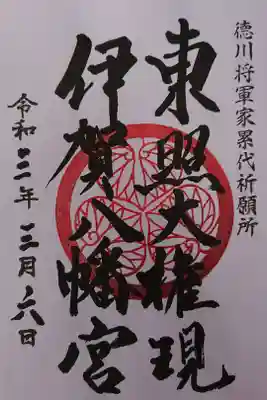 徳川将軍家累代祈願所
東照大権現
伊賀八幡宮
令和三年三月六日